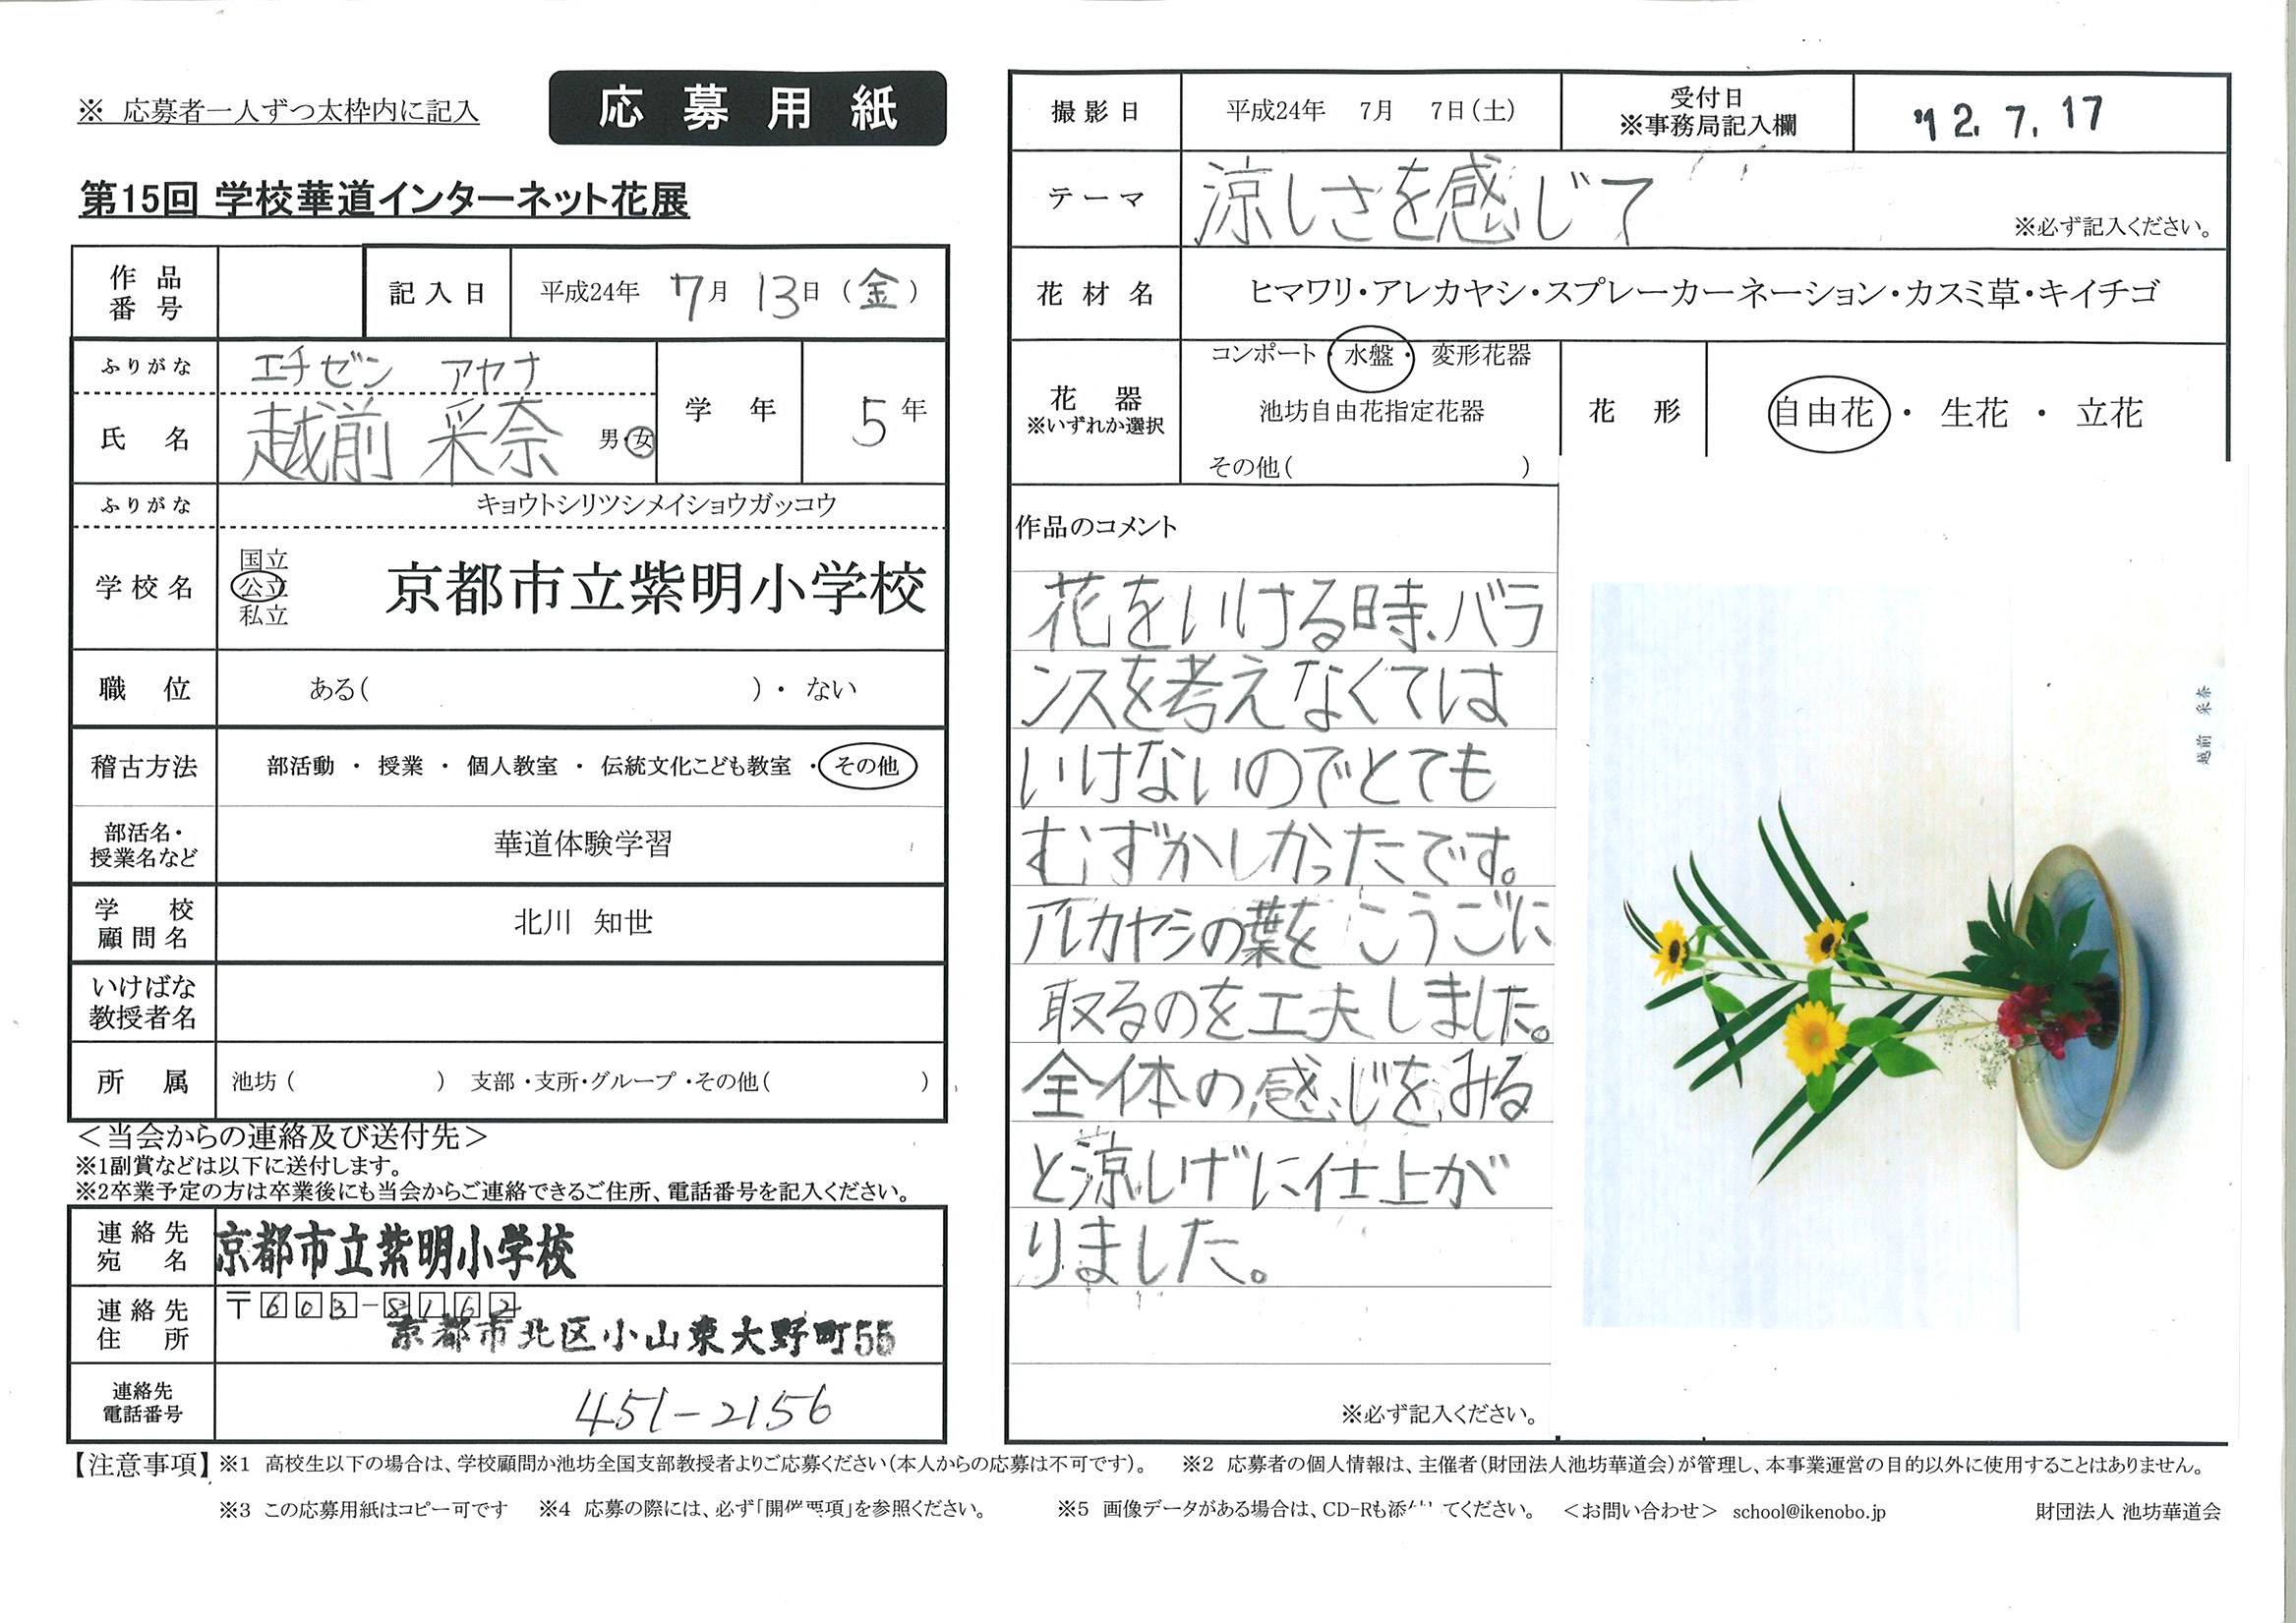 ※ 応募者一人ずつ太枠内に記入
応募用紙
第15回 学校華道インターネット花展
作品番号
記入日 平成24年 7月 13日 (金)
ふりがな エチゼン アヤナ
氏名 越前 采奈 男・女
学年 5年
ふりがな キョウトシリツシメイショウガッコウ
学校名 国立 公立 私立 京都市立紫明小学校
職位 ある( )・ ない
稽古方法 部活動 ・ 授業 ・ 個人教室 ・ 伝統文化こども教室 ・ その他
部活名・授業名など 華道体験学習
学校顧問名 北川 知世
いけばな教授者名
所属 池坊 ( ) 支部・支所・グループ・その他( )
＜当会からの連絡及び送付先＞
※1副賞などは以下に送付します。
※2卒業予定の方は卒業後にも当会からご連絡できるご住所、電話番号を記入ください。
連絡先宛名 京都市立紫明小学校
連絡先住所 〒603-8162
京都市北区小山東大野町55
連絡先電話番号 451-2156
撮影日 平成24年 7月 7日(土)
受付日 ※事務局記入欄 '12.7.17
テーマ 涼しさを感じて
※必ず記入ください。
花材名 ヒマワリ・アレカヤシ・スプレーカーネーション・カスミ草・キイチゴ
花器 ※いずれか選択
コンポート・水盤・変形花器
池坊自由花指定花器
その他( )
花形 自由花 ・ 生花 ・ 立花
作品のコメント
花をいける時、バラ
ンスを考えなくては
いけないのでとても
むずかしかったです。
アレカヤシの葉を こうごに
取るのを工夫しました。
全体の感じをみる
と涼しげに仕上が
りました。
※必ず記入ください。
越前 采奈
【注意事項】※1 高校生以下の場合は、学校顧問か池坊全国支部教授者よりご応募ください(本人からの応募は不可です)。 ※2 応募者の個人情報は、主催者(財団法人池坊華道会)が管理し、本事業運営の目的以外に使用することはありません。
※3 この応募用紙はコピー可です ※4 応募の際には、必ず「開催要項」を参照ください。 ※5 画像データがある場合は、CD-Rも添 てください。 ＜お問い合わせ＞ school@ikenobo.jp 財団法人 池坊華道会